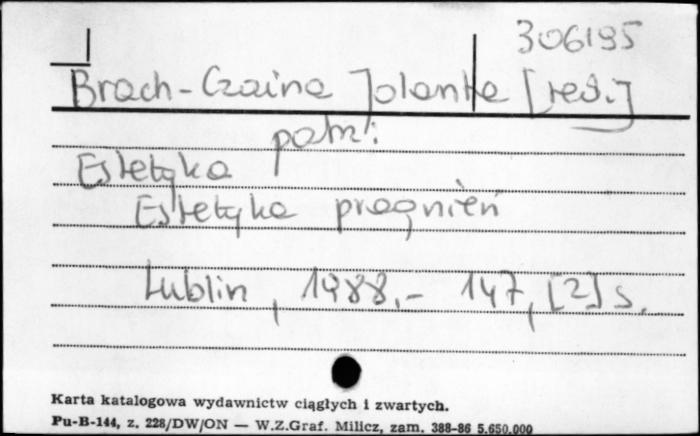 306195
Brach-Czaina Jolanta [red.]
patrz:
Estetyka
Estetyka pragnień
Lublin, 1988.- 147, [2] s.
Karta katalogowa wydawnictw ciągłych i zwartych.
Pu-B-144, z. 228/DW/ON — W.Z.Graf. Milicz, zam. 388-86 5.650.000